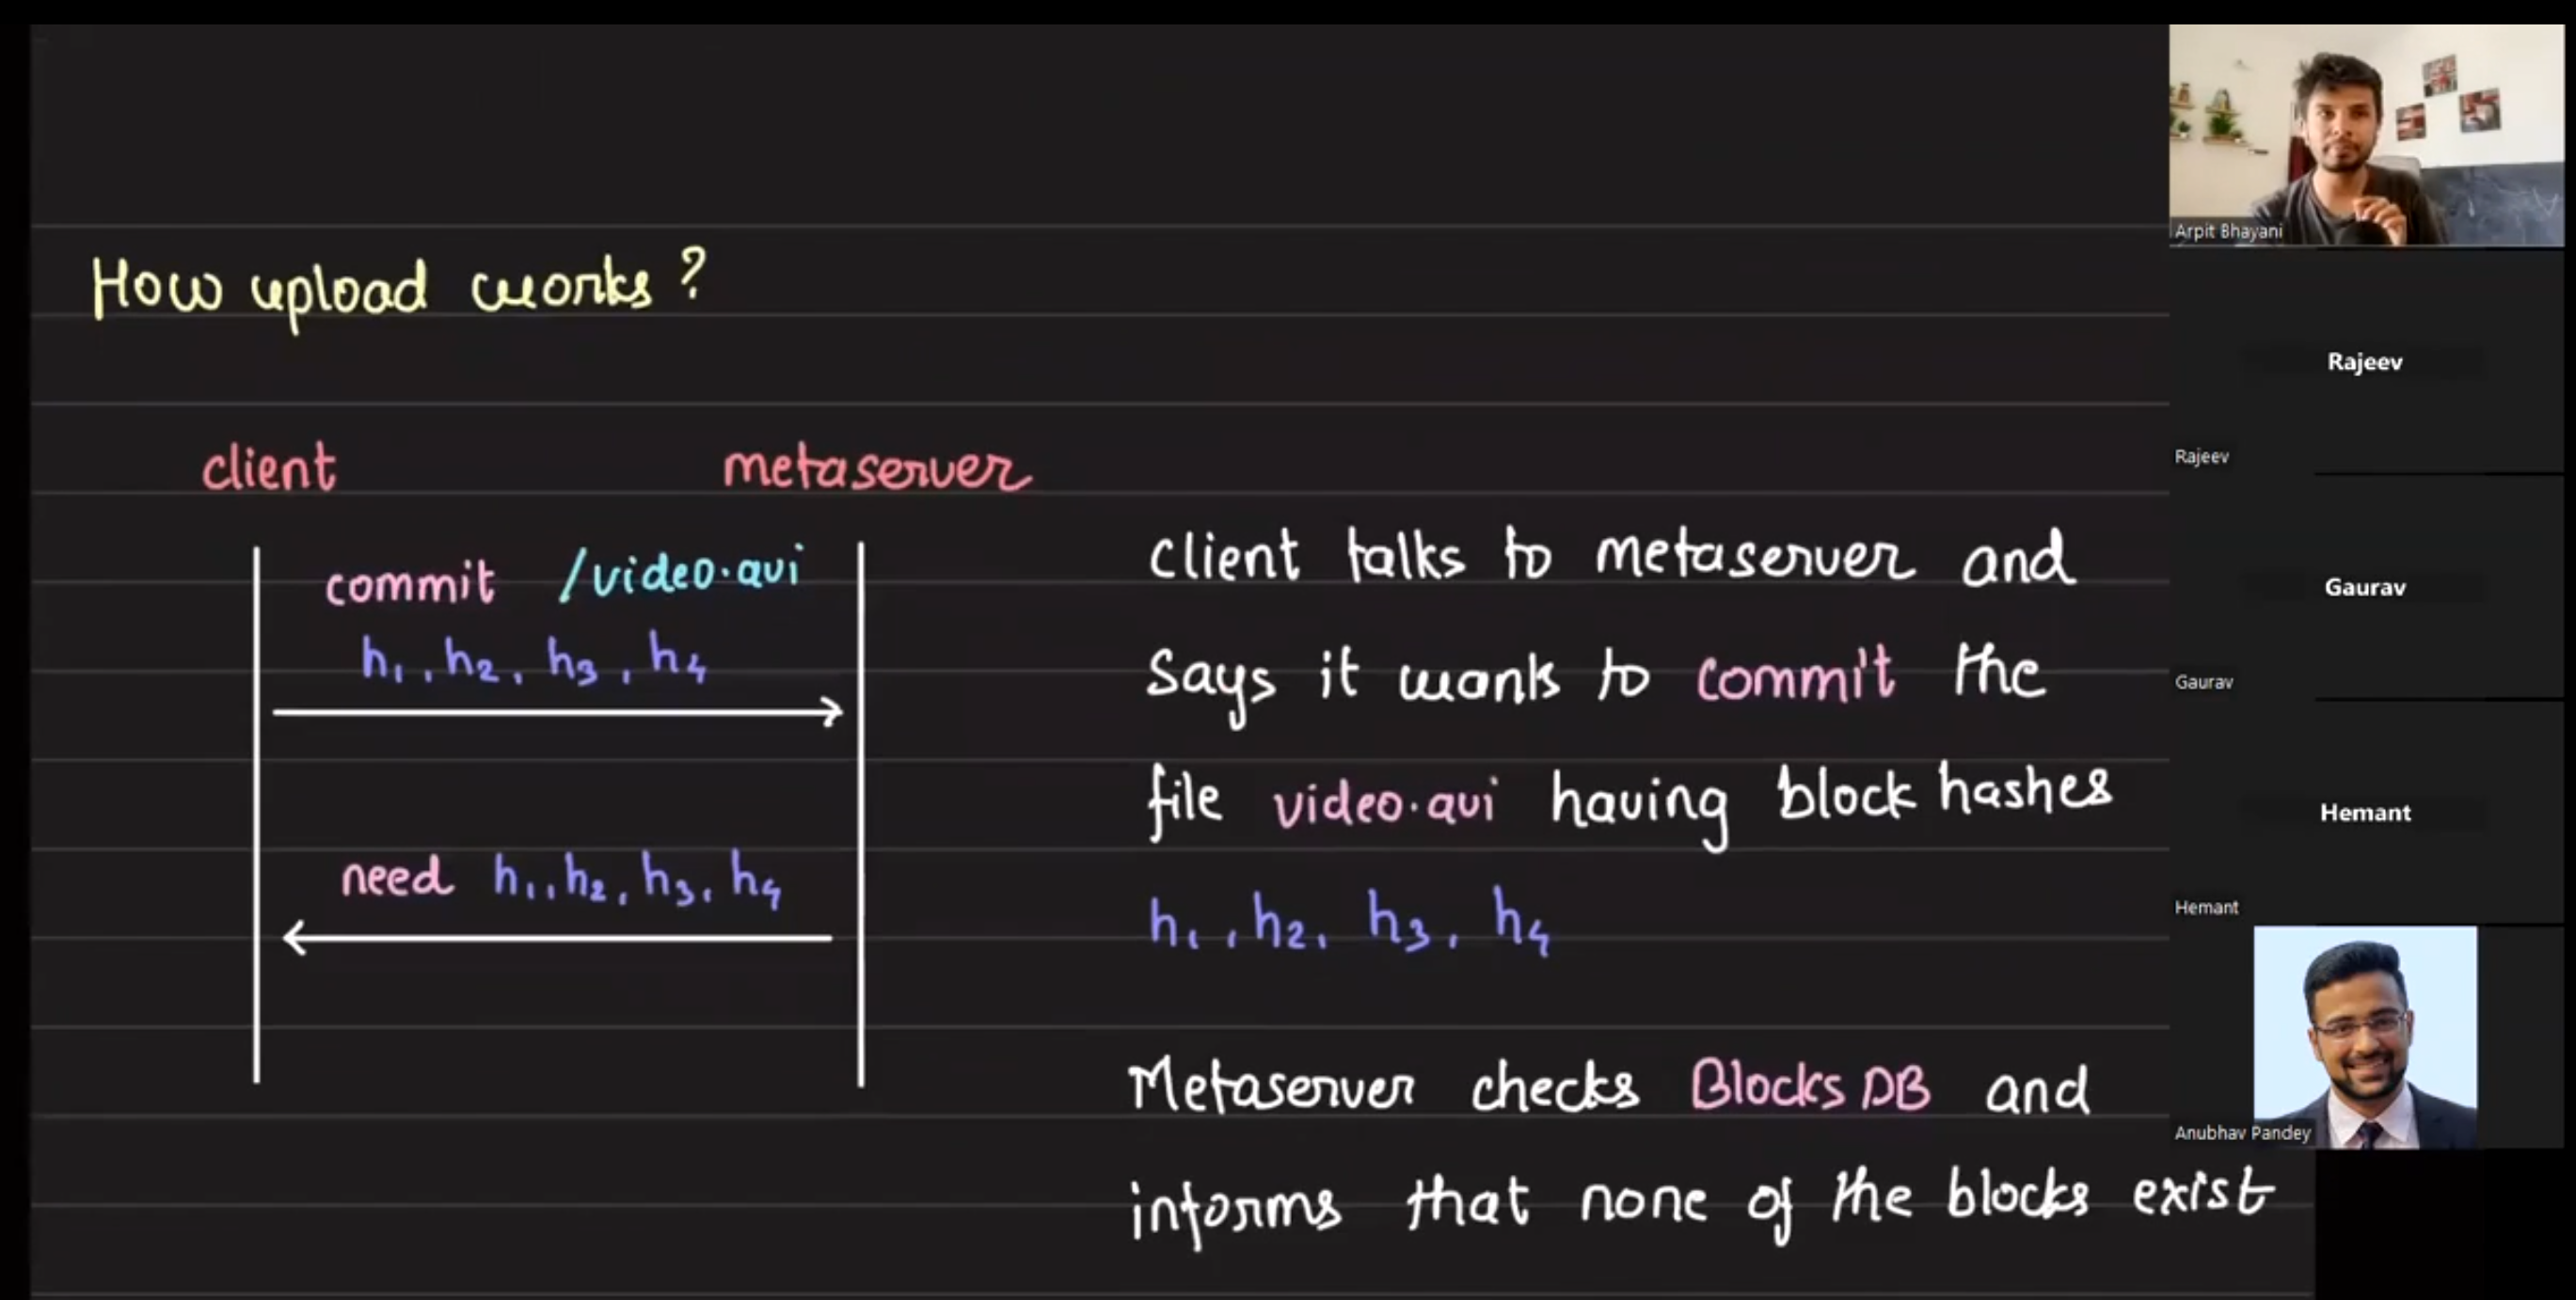 How upload works?
client metaserver
commit /video.avi
h1, h2, h3, h4
need h1, h2, h3, h4
client talks to metaserver and
says it wants to commit the
file video.avi having block hashes
h1, h2, h3, h4
Metaserver checks Blocks DB and
informs that none of the blocks exist
Arpit Bhayani
Rajeev
Rajeev
Gaurav
Gaurav
Hemant
Hemant
Anubhav Pandey